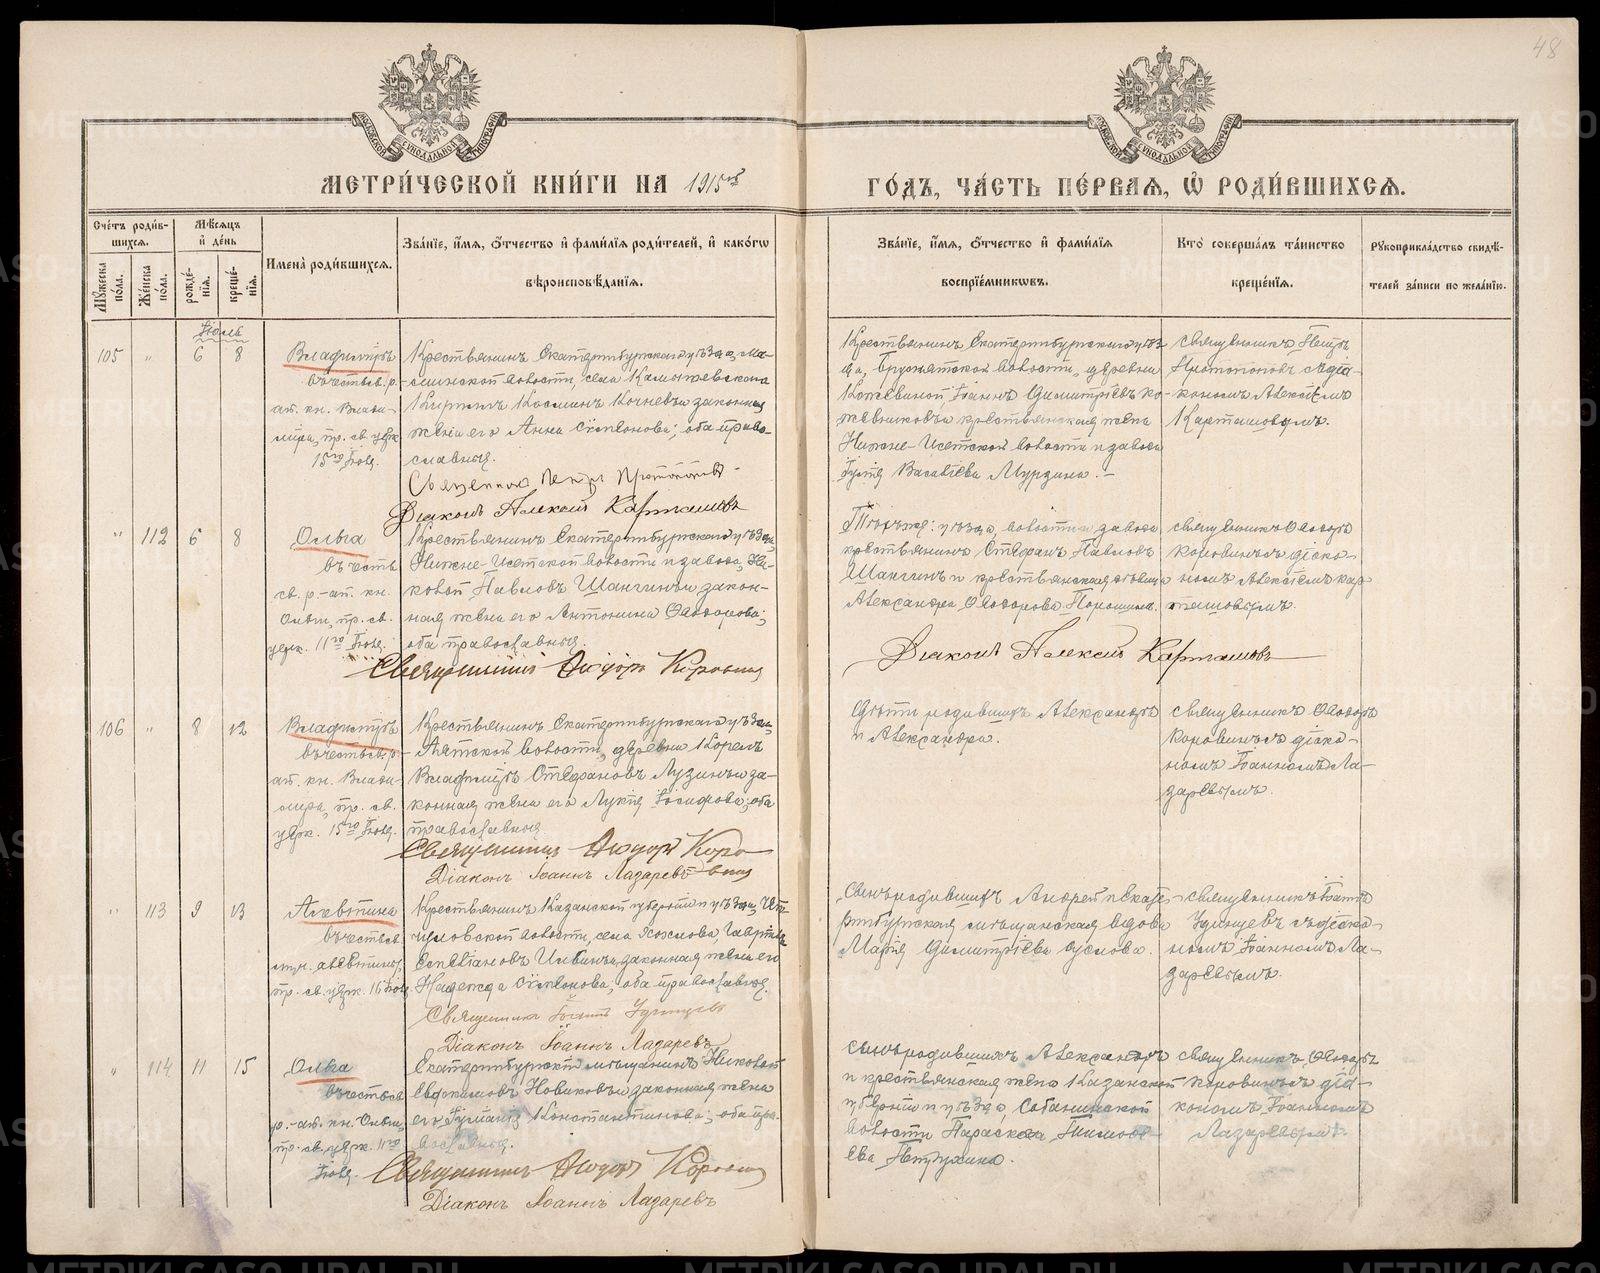 48
МЕТРИ́ЧЕСКОЙ КНИ́ГИ НА 1915й
ГО́ДЪ, ЧА́СТЬ ПЕ́РВАѦ, Ѡ҆ РОДИ́ВШИХСѦ.
Сче́тъ роди́в-
шихсѧ.
Мꙋ́жеска по́ла.
Же́нска по́ла.
Мѣ́сѧцъ
и҆ де́нь
рожде́-
нїѧ.
креще́-
нїѧ.
Имена̀ роди́вшихсѧ.
Зва́нїе, и҆́мѧ, ѻ҆́тчество и҆ фами́лїѧ роди́телей, и҆ како́гѡ
вѣроисповѣ́данїѧ.
Зва́нїе, и҆́мѧ, ѻ҆́тчество и҆ фами́лїѧ
воспрїе́мникѡвъ.
Кто̀ соверша́лъ та́инство
креще́нїѧ.
Рꙋкоприкла́дство свидѣ́-
телей за́писи по жела́нїю.
Іюль
105 " 6 8
Владиміръ
въ честь св. р.-
ап. кн. Влади-
міра, пр. св. церк.
15го Іюля.
Крестьянинъ Екатеринбургскаго уѣзда, Ма-
минской волости, села
Кириллъ Косминъ Кочневъ и законная
жена его Анна Симеонова; оба право-
славные.
Священникъ Петръ Протопоповъ
Діаконъ Алексій Карташовъ
Крестьянинъ Екатеринбургскаго уѣз-
да, волости, деревни
Іоаннъ Димитріевъ Ко-
жевниковъ и крестьянская жена
Нижне-Исетской волости и завода
Васильева Мурзина.
священникъ Петръ
Протопоповъ съ діа-
кономъ Алексіемъ
Карташовымъ.
" 112 6 8
Ольга
въ честь
св. р.-ап. кн.
Ольги, пр. св.
церк. 11го Іюля.
Крестьянинъ Екатеринбургскаго уѣзда,
Нижне-Исетской волости и завода, Ни-
колай Павловъ Шангинъ и закон-
ная жена его Антонина Ѳеодорова;
оба православные.
Священникъ Ѳеодоръ Коровинъ
Діаконъ Алексій Карташовъ
Того же: уѣзда, волости и завода
крестьянинъ Стефанъ Павловъ
Шангинъ и крестьянская девица
Александра Ѳеодорова
священникъ Ѳеодоръ
Коровинъ съ діако-
номъ Алексіемъ Кар-
ташовымъ.
106 " 8 12
Владиміръ
въ честь св. р.-
ап. кн. Влади-
міра, пр. св.
церк. 15го Іюля.
Крестьянинъ Екатеринбургскаго уѣзда,
волости, деревни
Владиміръ Стефановъ Лузинъ и за-
конная жена его Лукія Іосифова; оба
православные.
Священникъ Ѳеодоръ Коро
винъ
Діаконъ Іоаннъ Лазаревъ
Дѣти родившихъ Александръ
и Александра.
священникъ Ѳеодоръ
Коровинъ съ діако-
номъ Іоанномъ Ла-
заревымъ.
" 113 9 13
Алевтина
въ честь св.
муч. Алевтины,
пр. св. церк. 16 Іюля
Крестьянинъ Казанской губерніи и уѣзда,
волости, села
Ильинъ и законная жена его
Надежда Симеонова; оба православные.
Священникъ Іоаннъ Удинцевъ
Діаконъ Іоаннъ Лазаревъ
Сынъ родившихъ Андрей и Екате-
ринбургская мѣщанская вдова
Марія Димитріева Суслова.
священникъ Іоаннъ
Удинцевъ съ діако-
номъ Іоанномъ Ла-
заревымъ.
" 114 11 15
Ольга
въ честь св.
р.-ап. кн. Ольги,
пр. св. церк. 11го
Іюля.
Екатеринбургскій мѣщанинъ Николай
Евдокимовъ Новиковъ и законная жена
его Іуліанія Константинова; оба пра-
вославные.
Священникъ Ѳеодоръ Коровинъ
Діаконъ Іоаннъ Лазаревъ
Сынъ родившихъ Александръ
и крестьянская жена Казанской
губерніи и уѣзда,
волости Параскева
Петухина.
священникъ Ѳеодоръ
Коровинъ съ діа-
кономъ Іоанномъ
Лазаревымъ.
METRIKI.GASO-URAL.RU